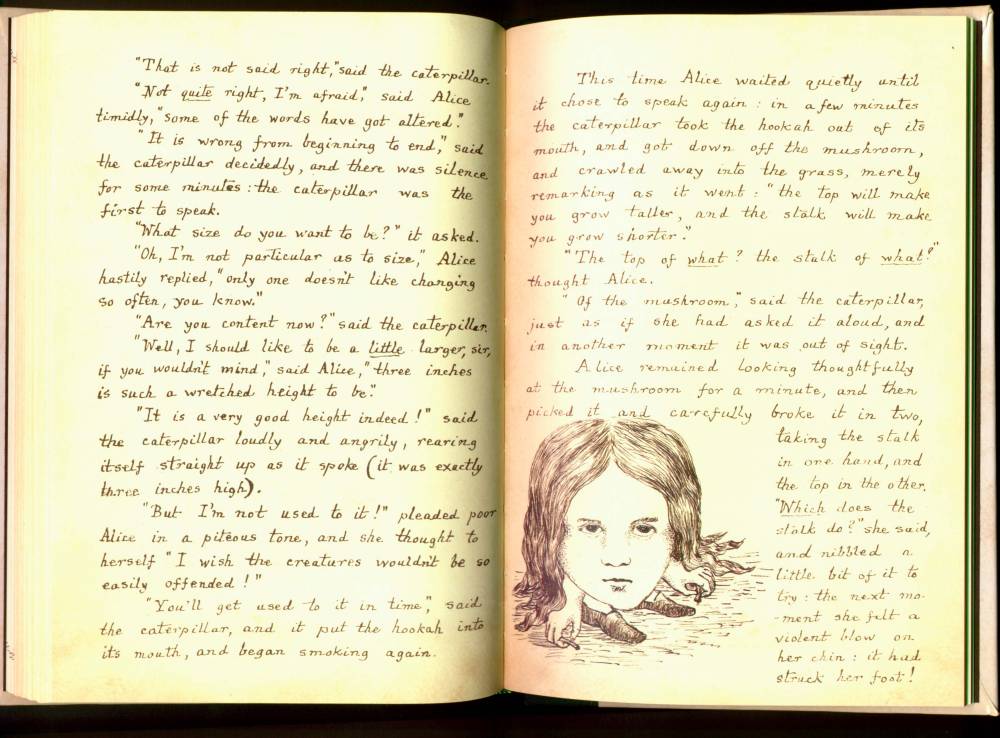 "That is not said right," said the caterpillar.
"Not quite right, I'm afraid," said Alice
timidly, "some of the words have got altered."
"It is wrong from beginning to end," said
the caterpillar decidedly, and there was silence
for some minutes: the caterpillar was the
first to speak.
"What size do you want to be?" it asked.
"Oh, I'm not particular as to size," Alice
hastily replied, "only one doesn't like changing
so often, you know."
"Are you content now?" said the caterpillar.
"Well, I should like to be a little larger, sir,
if you wouldn't mind," said Alice, "three inches
is such a wretched height to be."
"It is a very good height indeed!" said
the caterpillar loudly and angrily, rearing
itself straight up as it spoke (it was exactly
three inches high).
"But I'm not used to it!" pleaded poor
Alice in a piteous tone, and she thought to
herself "I wish the creatures wouldn't be so
easily offended!"
"You'll get used to it in time," said
the caterpillar, and it put the hookah into
its mouth, and began smoking again.
This time Alice waited quietly until
it chose to speak again: in a few minutes
the caterpillar took the hookah out of its
mouth, and got down off the mushroom,
and crawled away into the grass, merely
remarking as it went: "the top will make
you grow taller, and the stalk will make
you grow shorter."
"The top of what? the stalk of what?"
thought Alice.
"Of the mushroom," said the caterpillar,
just as if she had asked it aloud, and
in another moment it was out of sight.
Alice remained looking thoughtfully
at the mushroom for a minute, and then
picked it and carefully broke it in two,
taking the stalk
in one hand, and
the top in the other.
"Which does the
stalk do?" she said,
and nibbled a
little bit of it to
try: the next mo-
-ment she felt a
violent blow on
her chin: it had
struck her foot!